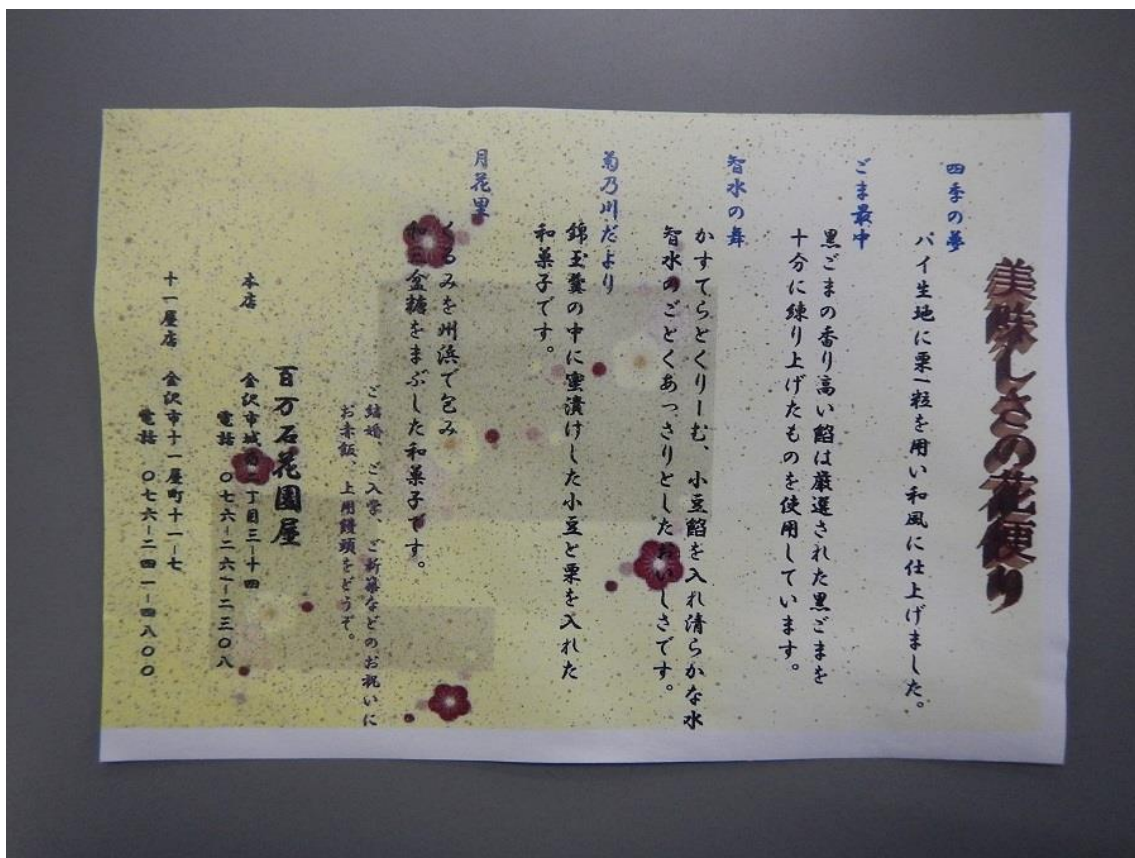 美味しさの花便り
四季の夢
パイ生地に栗一粒を用い和風に仕上げました。
ごま最中
黒ごまの香り高い餡は厳選された黒ごまを
十分に練り上げたものを使用しています。
智水の舞
かすてらとくりーむ、小豆餡を入れ清らかな水
智水のごとくあっさりとしたおいしさです。
菊乃川だより
錦玉羹の中に蜜漬けした小豆と栗を入れた
和菓子です。
月花里
くるみを州浜で包み
和三盆糖をまぶした和菓子です。
ご結婚、ご入学、ご新築などのお祝いに
お赤飯、上用饅頭をどうぞ。
百万石花園屋
本店 金沢市城南二丁目三ー十四
電話 〇七六ー二六一ー二三〇八
十一屋店 金沢市十一屋町十一ー七
電話 〇七六ー二四一ー四八〇〇